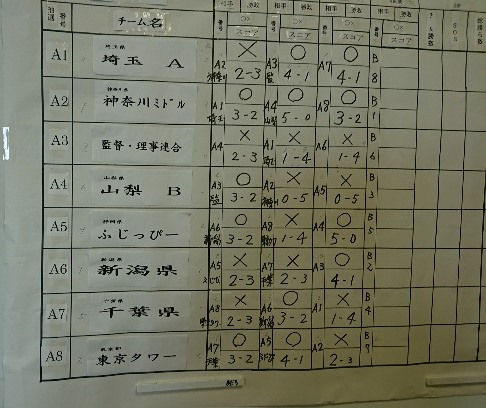 抽選番号 チーム名 番号 相手 勝数 ○× スコア 番号 相手 勝数 ○× スコア 番号 相手 勝数 ○× スコア 番号 スコア SOS
埼玉県
A1 埼玉 A A2 × 2-3 A3 ○ 4-1 A7 ○ 4-1 B8
神奈川県
A2 神奈川ミドル A1 埼玉 ○ 3-2 A4 山梨 ○ 5-0 A8 ○ 3-2 B1
A3 監督・理事連合 A4 × 2-3 A1 埼玉 × 1-4 A6 × 1-4 B6
山梨県
A4 山梨 B A3 ○ 3-2 A2 × 0-5 A5 × 0-5 B3
静岡県
A5 ふじっぴー A6 新潟 ○ 3-2 A8 × 1-4 A4 ○ 5-0 B5
新潟県
A6 新潟県 A5 × 2-3 A7 千葉 × 2-3 A3 ○ 4-1 B2
千葉県
A7 千葉県 A8 × 2-3 A6 新潟 ○ 3-2 A1 × 1-4 B4
東京都
A8 東京タワー A7 千葉 ○ 3-2 A5 ○ 4-1 A2 × 2-3 B7